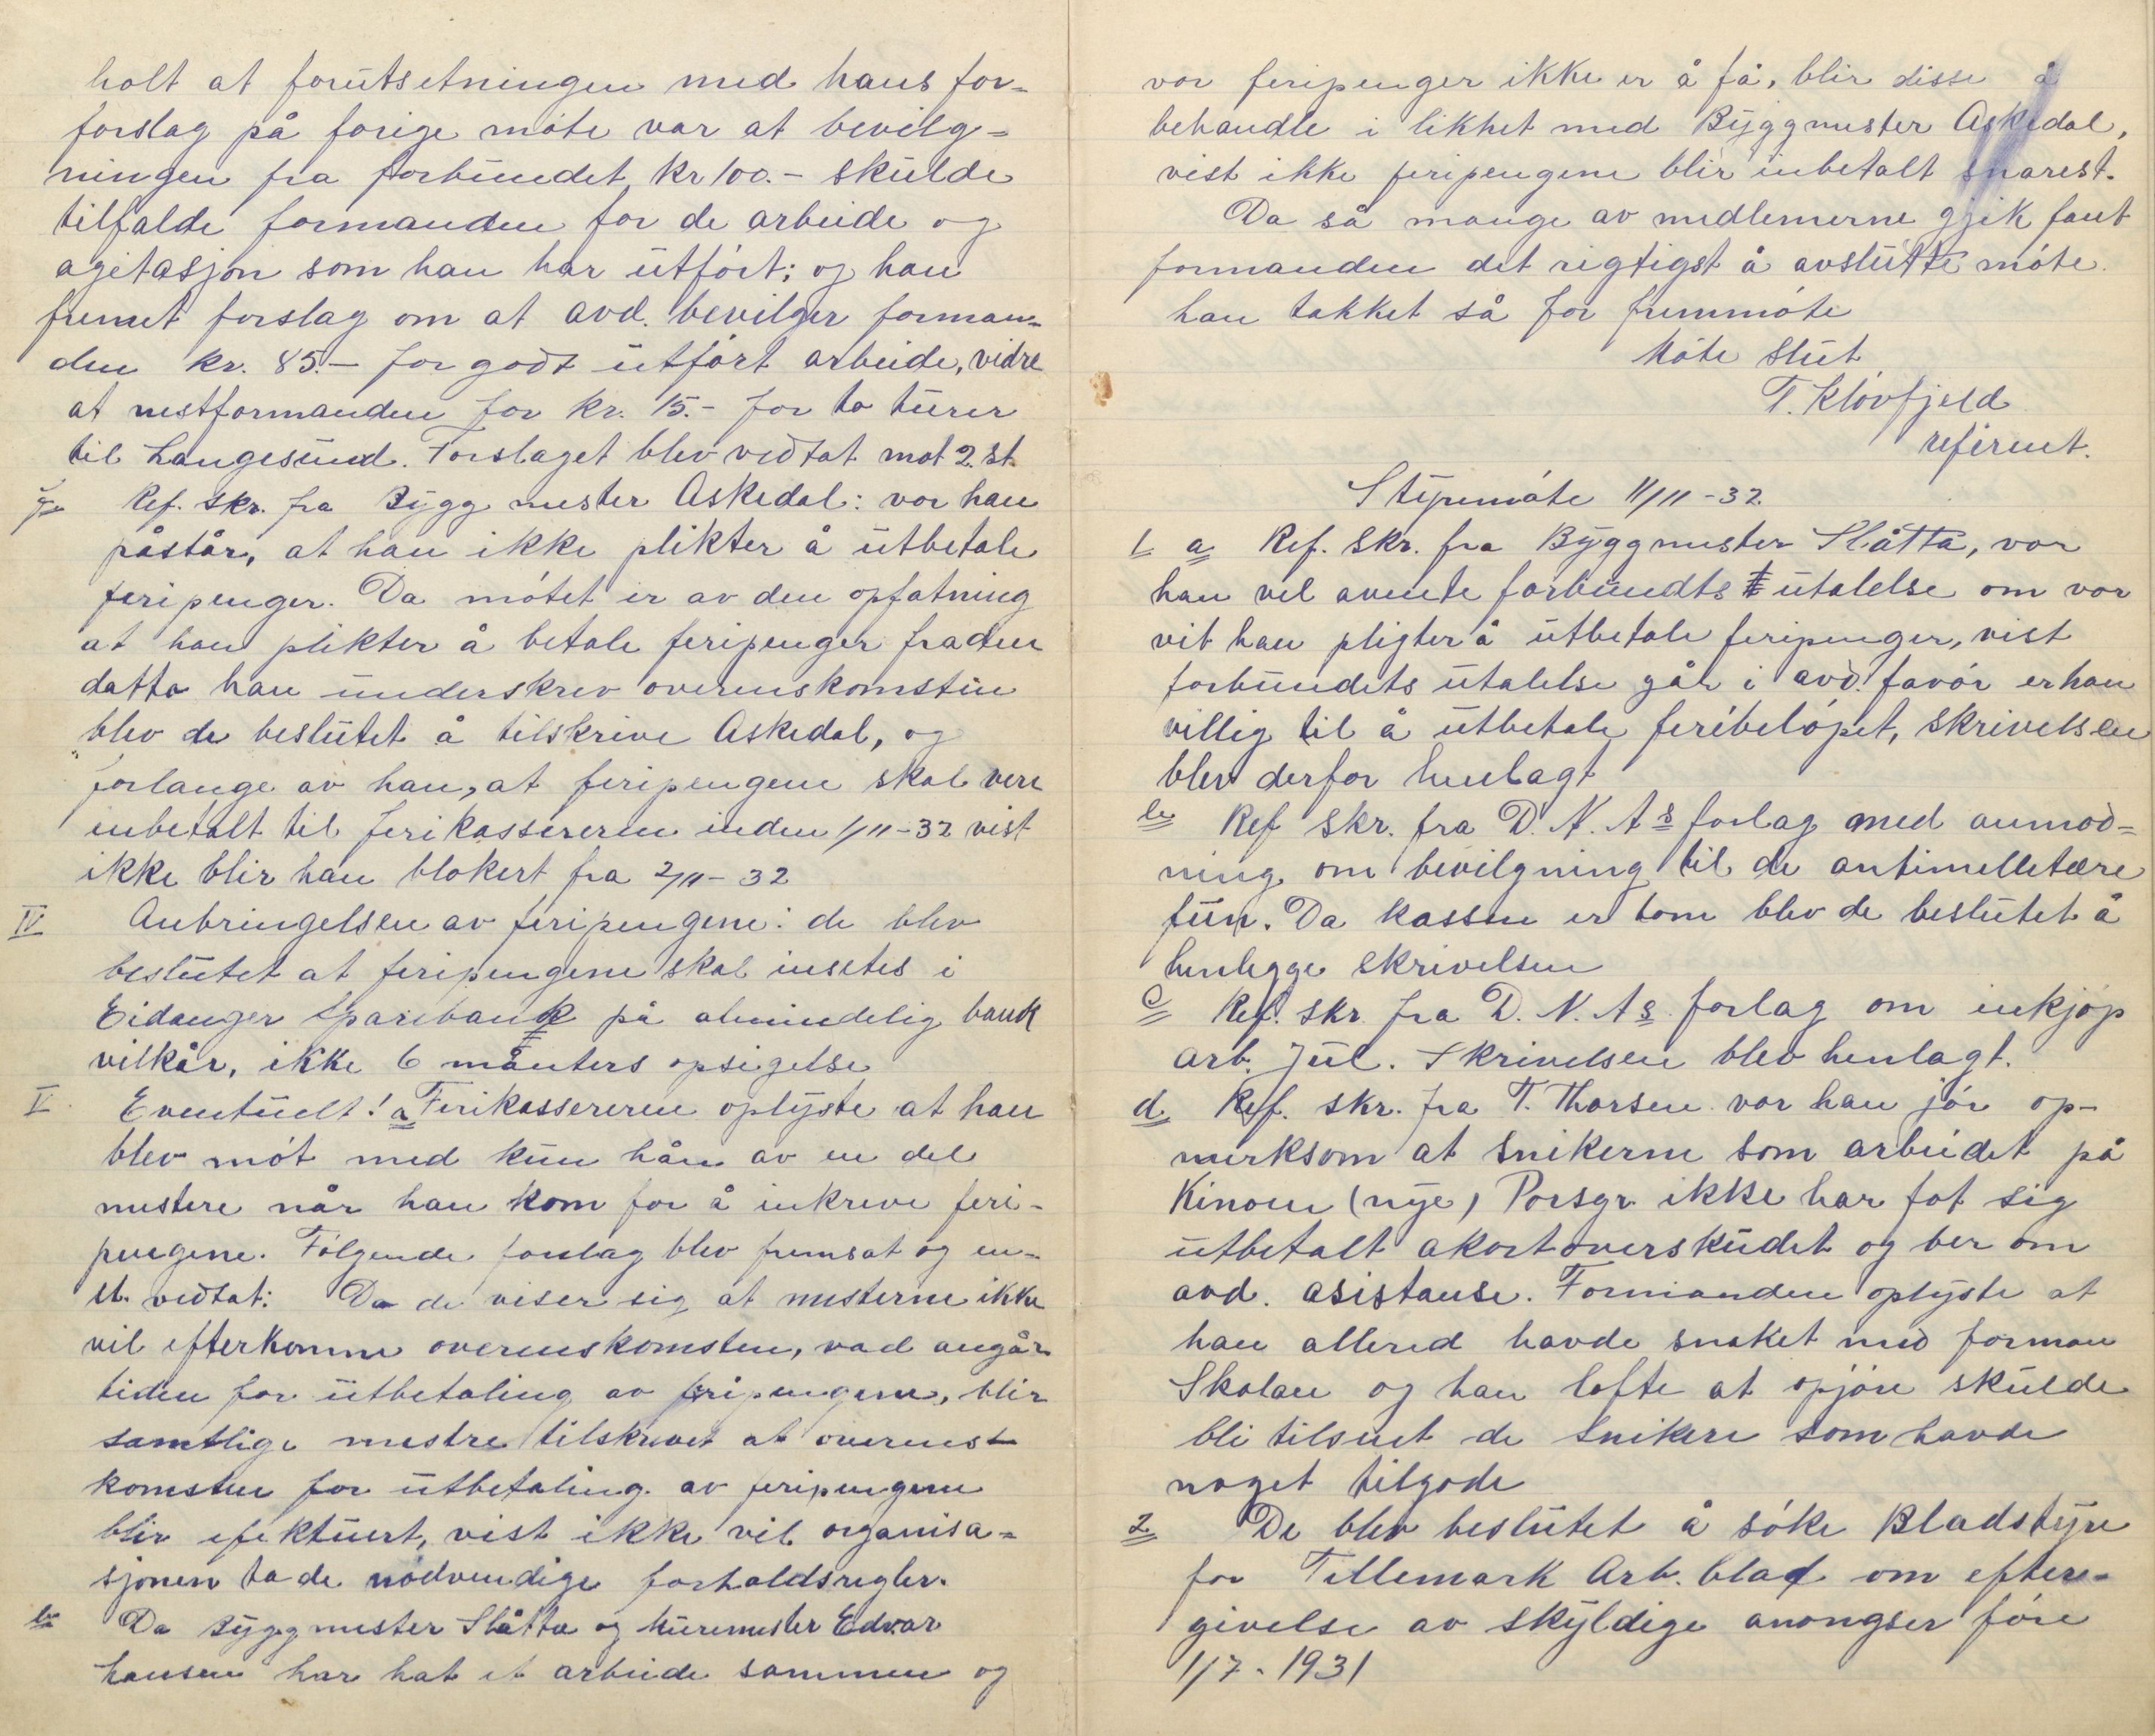 holt at forutsetningen med hans for-
forslag på forige møte var at bevilg-
ningen fra forbundet kr 100.- skulde
tilfalde formanden for de arbeide og
agitasjon som han har utført; og han
fremet forslag om at avd. bevilger forman-
den kr. 85.- for godt utført arbeide, vidre
at nestformanden for kr. 15.- for to turer
til Langesund. Forslaget blev vedtat mot 2. st.
Ref. skr. fra Bygg mester Askedal: vor han
påstår, at han ikke plikter å utbetale
feripenger. Da møtet er av den opfatning
at han plikter å betale feripenger fra den
datto han underskrev overenskomsten
blev de beslutet å tilskrive Askedal, og
forlange av han, at feripengene skal vere
inbetalt til ferikassereren inden 1/11-32 vist
ikke blir han blokert fra 2/11-32
IV Anbringelsen av feripengene: de blev
beslutet at feripengene skal insetes i
Eidanger Sparebank på almindelig bank
vilkår, ikke 6 månters opsigelse
V Eventuelt! a Ferikassereren oplyste at han
blev møt med kun hån av en del
mestere når han kom for å inkreve feri-
pengene. Følgende forslag blev fremsat og en-
st. vedtat: Da de viser sig at mesterne ikke
vil efterkomme overenskomsten, vad angår
tiden for utbetaling av feripengene, blir
samtlige mestre tilskrevet at overenst
komsten for utbetaling. av feripengene
blir efektuert, vist ikke vil organisa-
sjonen ta de nødvendige forholdsregler.
b Da Byggmester Slåtta og Muremester Edvar
hansen har hat et arbeide sammen og
vor feripenger ikke er å få, blir disse å
behandle i likhet med Byggmester Askedal,
vist ikke feripengene blir inbetalt snarest.
Da så mange av medlemerne gjik fant
formanden det rigtigst å avslutte møte.
han takket så for fremmøte
Møte Slut
T. Kløvfjeld
referent.
Styremøte 11/11-32.
1 a Ref. Skr. fra Byggmester Slåtta, vor
han vil avente forbundts utalelse om vor
vit han pligter å utbetale feripenger, vist
forbundets utalelse går i avd. favør er han
villig til å utbetale feribeløpet, skrivelsen
blev derfor henlagt
b Ref skr. fra D.N.As forlag med anmod-
ning om bevilgning til de antimelletære
fun. Da kassen er tom blev de beslutet å
henlegge skrivelsen
c Ref. skr fra D.N.As forlag om inkjøp
arb. Jul. Skrivelsen blev henlagt.
d Ref. skr. fra T. Thorsen vor han jør op-
merksom at snikerne som arbeidet på
Kinoen (nye) Porsgr. ikke har fot sig
utbetalt akortoverskudet og ber om
avd. asistanse. Formanden oplyste at
han allered havde snaket med forman
Skolan og han lofte at opjøre skulde
bli tilsent de snikere som havde
noget tilgode
2 De blev beslutet å søke Bladstyre
for Tellemark Arb. blad om eftere-
givelse av skyldige anongser føre
1/7-1931